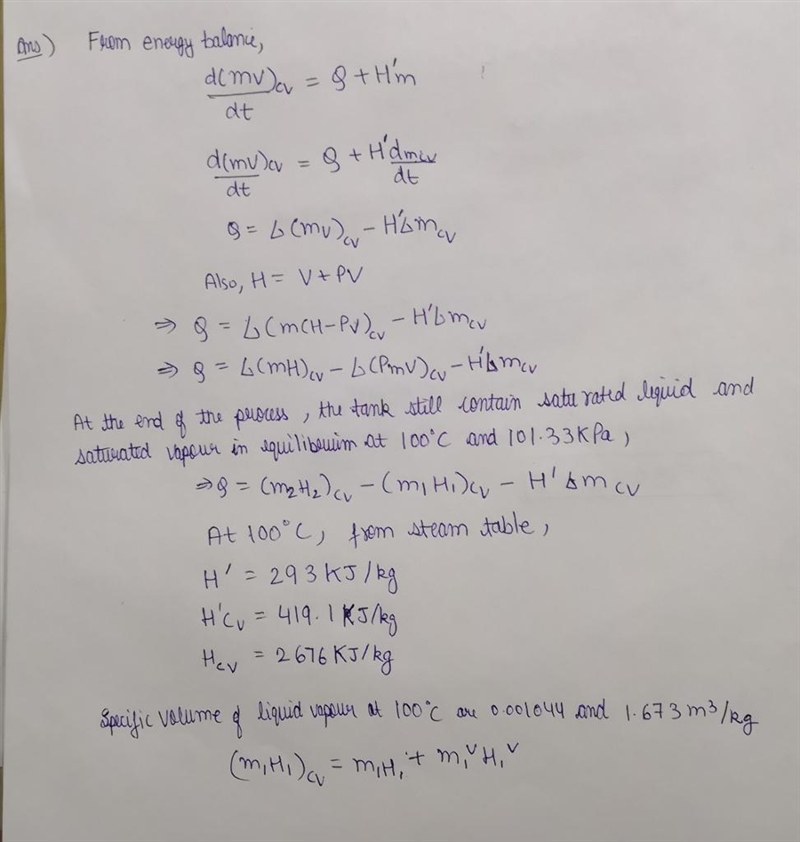 Ans) From energy balance,
d(mV)CV/dt = Q + H'm
d(mV)CV/dt = Q + H'dmCV/dt
Q = Δ(mV)CV - H'ΔmCV
Also, H = V + PV
⇒ Q = Δ(m(H-PV)CV - H'ΔmCV
⇒ Q = Δ(mH)CV - Δ(PmV)CV - H'ΔmCV
At the end of the process, the tank still contain saturated liquid and
saturated vapour in equilibouim at 100°C and 101.33KPa,
⇒ Q = (m₂H₂)CV - (m₁H₁)CV - H'ΔmCV
At 100°C, from steam table,
H' = 293 KJ/kg
H'CV = 419.1 KJ/kg
HCV = 2676 KJ/kg
Specific volume of liquid vapour at 100°C are 0.001044 and 1.673 m³/kg
(m₁H₁)CV = m₁H₁ + m₁ⱽH₁ⱽ